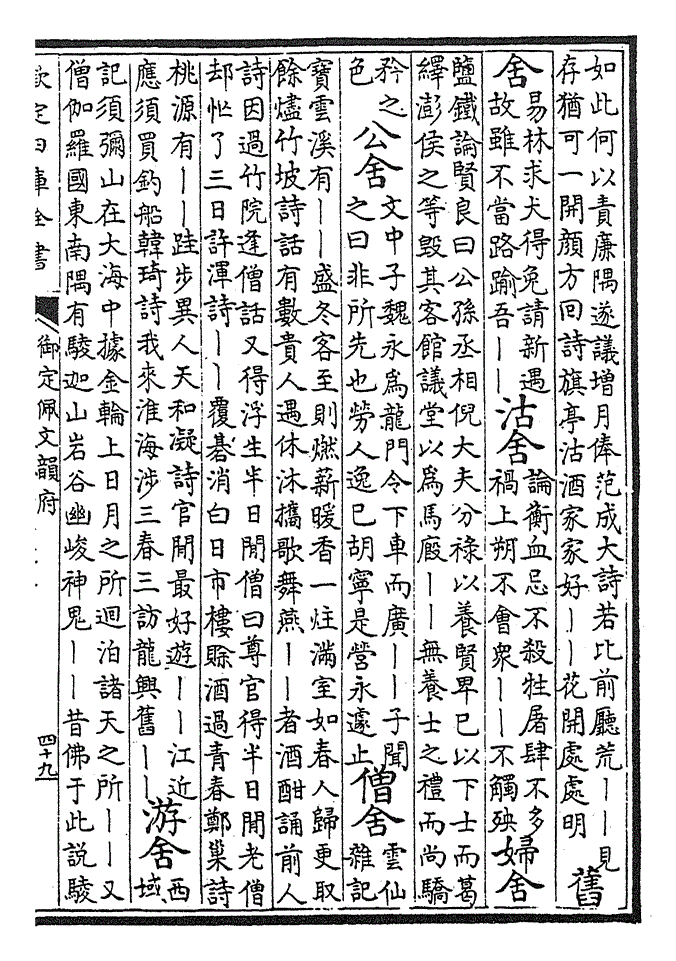 如此何以責廉隅遂議增月俸范成大詩若比前廳荒丨丨見
存猶可一開顏方回詩旗亭沽酒家家好丨丨花開處處明
舊
舍
易林求犬得兔請新遇
故雖不當路踰吾丨丨
沽舍
論衡血忌不殺牲屠肆不多
禍上朔不會衆丨丨不觸殃
婦舍
鹽鐵論賢良曰公孫丞相倪大夫分祿以養賢卑已以下士而葛
繹澎侯之等毀其客館議堂以爲馬廄丨丨無養士之禮而尚驕
矜之
色
公舍
文中子魏永爲龍門令下車而廣丨丨子聞
之曰非所先也勞人逸已胡寧是營永遽止
僧舍
雲仙
雜記
寶雲溪有丨丨盛冬客至則燃薪暖香一炷滿室如春人歸更取
餘燼竹坡詩話有數貴人遇休沐攜歌舞燕丨丨者酒酣誦前人
詩因過竹院逢僧話又得浮生半日閒僧曰尊官得半日閒老僧
却忙了三日許渾詩丨丨覆碁消白日市樓賒酒過青春鄭巢詩
桃源有丨丨跬步異人天和凝詩官閒最好遊丨丨江近
應須買釣船韓琦詩我來淮海涉三春三訪龍興舊丨丨
游舍
西
域
記須彌山在大海中據金輪上日月之所迴泊諸天之所丨丨又
僧伽羅國東南隅有駿迦山岩谷幽峻神鬼丨丨昔佛于此說駿
欽定四庫全書
御定佩文韻府
四十九